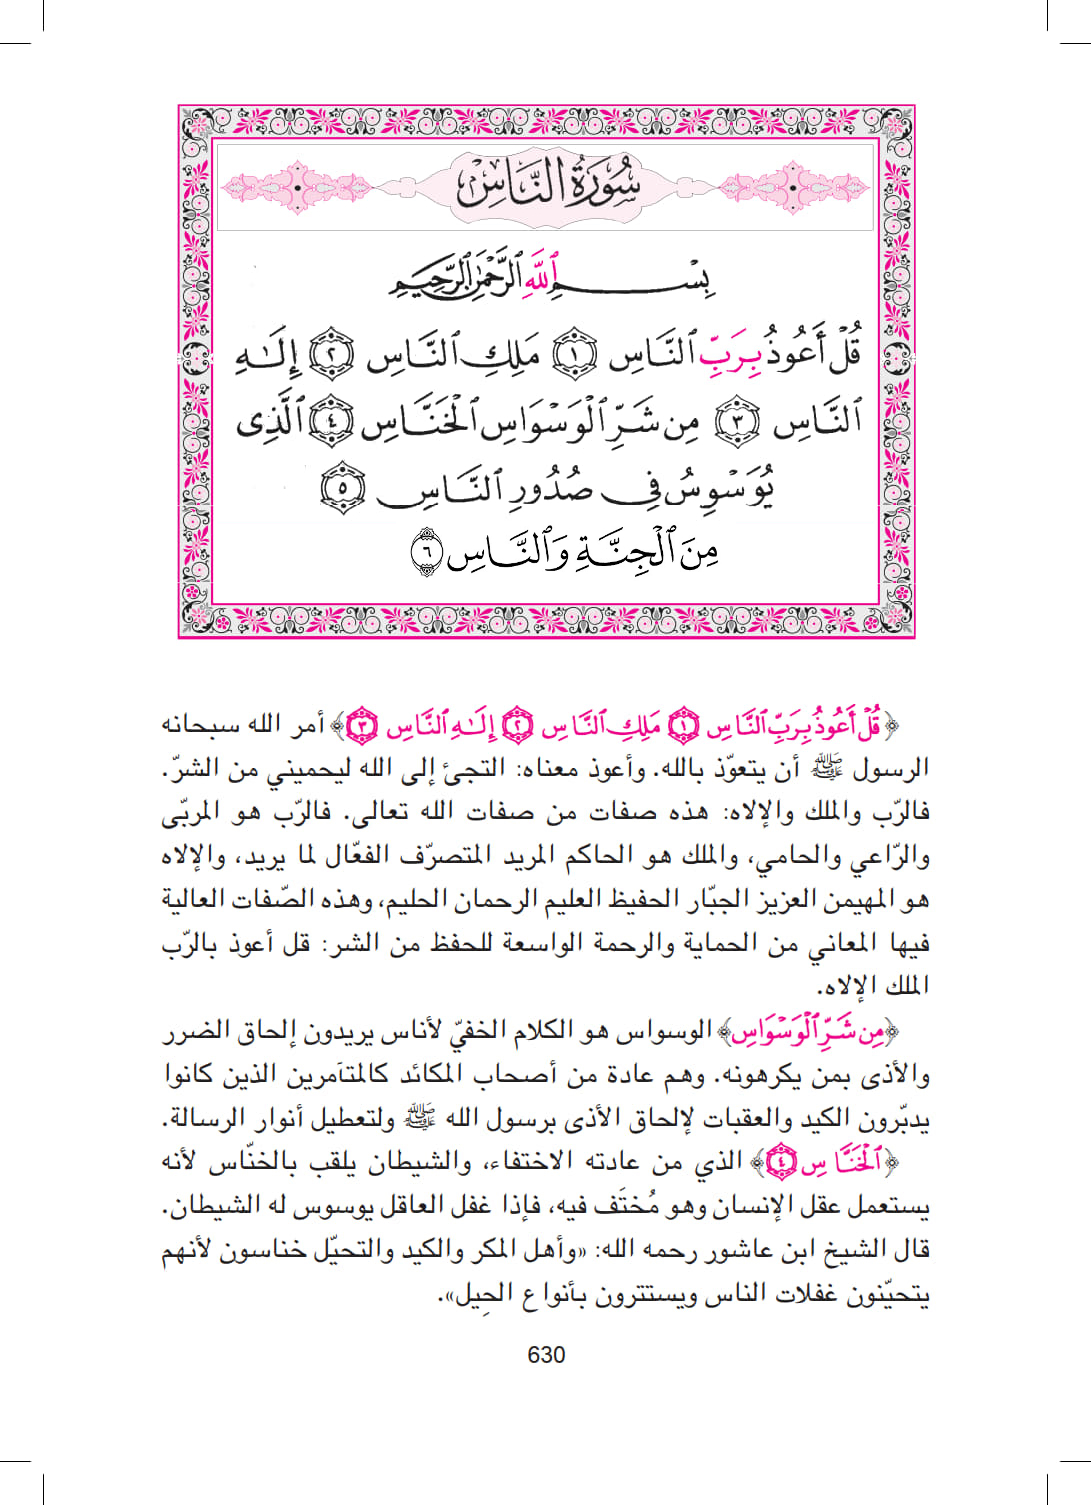 سُورَةُ النَّاسِ
بِسْمِ ٱللَّهِ ٱلرَّحْمَٰنِ ٱلرَّحِيمِ
قُلْ أَعُوذُ بِرَبِّ ٱلنَّاسِ ١ مَلِكِ ٱلنَّاسِ ٢ إِلَٰهِ
ٱلنَّاسِ ٣ مِن شَرِّ ٱلْوَسْوَاسِ ٱلْخَنَّاسِ ٤ ٱلَّذِى
يُوَسْوِسُ فِى صُدُورِ ٱلنَّاسِ ٥
مِنَ ٱلْجِنَّةِ وَٱلنَّاسِ ٦
﴿قُلْ أَعُوذُ بِرَبِّ ٱلنَّاسِ ١ مَلِكِ ٱلنَّاسِ ٢ إِلَٰهِ ٱلنَّاسِ ٣﴾ أمر الله سبحانه
الرسول ﷺ أن يتعوّذ بالله. وأعوذ معناه: التجئ إلى الله ليحميني من الشرّ.
فالرّب والملك والإلاه: هذه صفات من صفات الله تعالى. فالرّب هو المربّى
والرّاعي والحامي، والملك هو الحاكم المريد المتصرّف الفعّال لما يريد، والإلاه
هو المهيمن العزيز الجبّار الحفيظ العليم الرحمان الحليم، وهذه الصّفات العالية
فيها المعاني من الحماية والرحمة الواسعة للحفظ من الشر: قل أعوذ بالرّب
الملك الإلاه.
﴿مِن شَرِّ ٱلْوَسْوَاسِ﴾ الوسواس هو الكلام الخفيّ لأناس يريدون إلحاق الضرر
والأذى بمن يكرهونه. وهم عادة من أصحاب المكائد كالمتآمرين الذين كانوا
يدبّرون الكيد والعقبات لإلحاق الأذى برسول الله ﷺ ولتعطيل أنوار الرسالة.
﴿ٱلْخَنَّاسِ ٤﴾ الذي من عادته الاختفاء، والشيطان يلقب بالخنّاس لأنه
يستعمل عقل الإنسان وهو مُختَف فيه، فإذا غفل العاقل يوسوس له الشيطان.
قال الشيخ ابن عاشور رحمه الله: «وأهل المكر والكيد والتحيّل خناسون لأنهم
يتحيّنون غفلات الناس ويستترون بأنواع الحِيل».
630